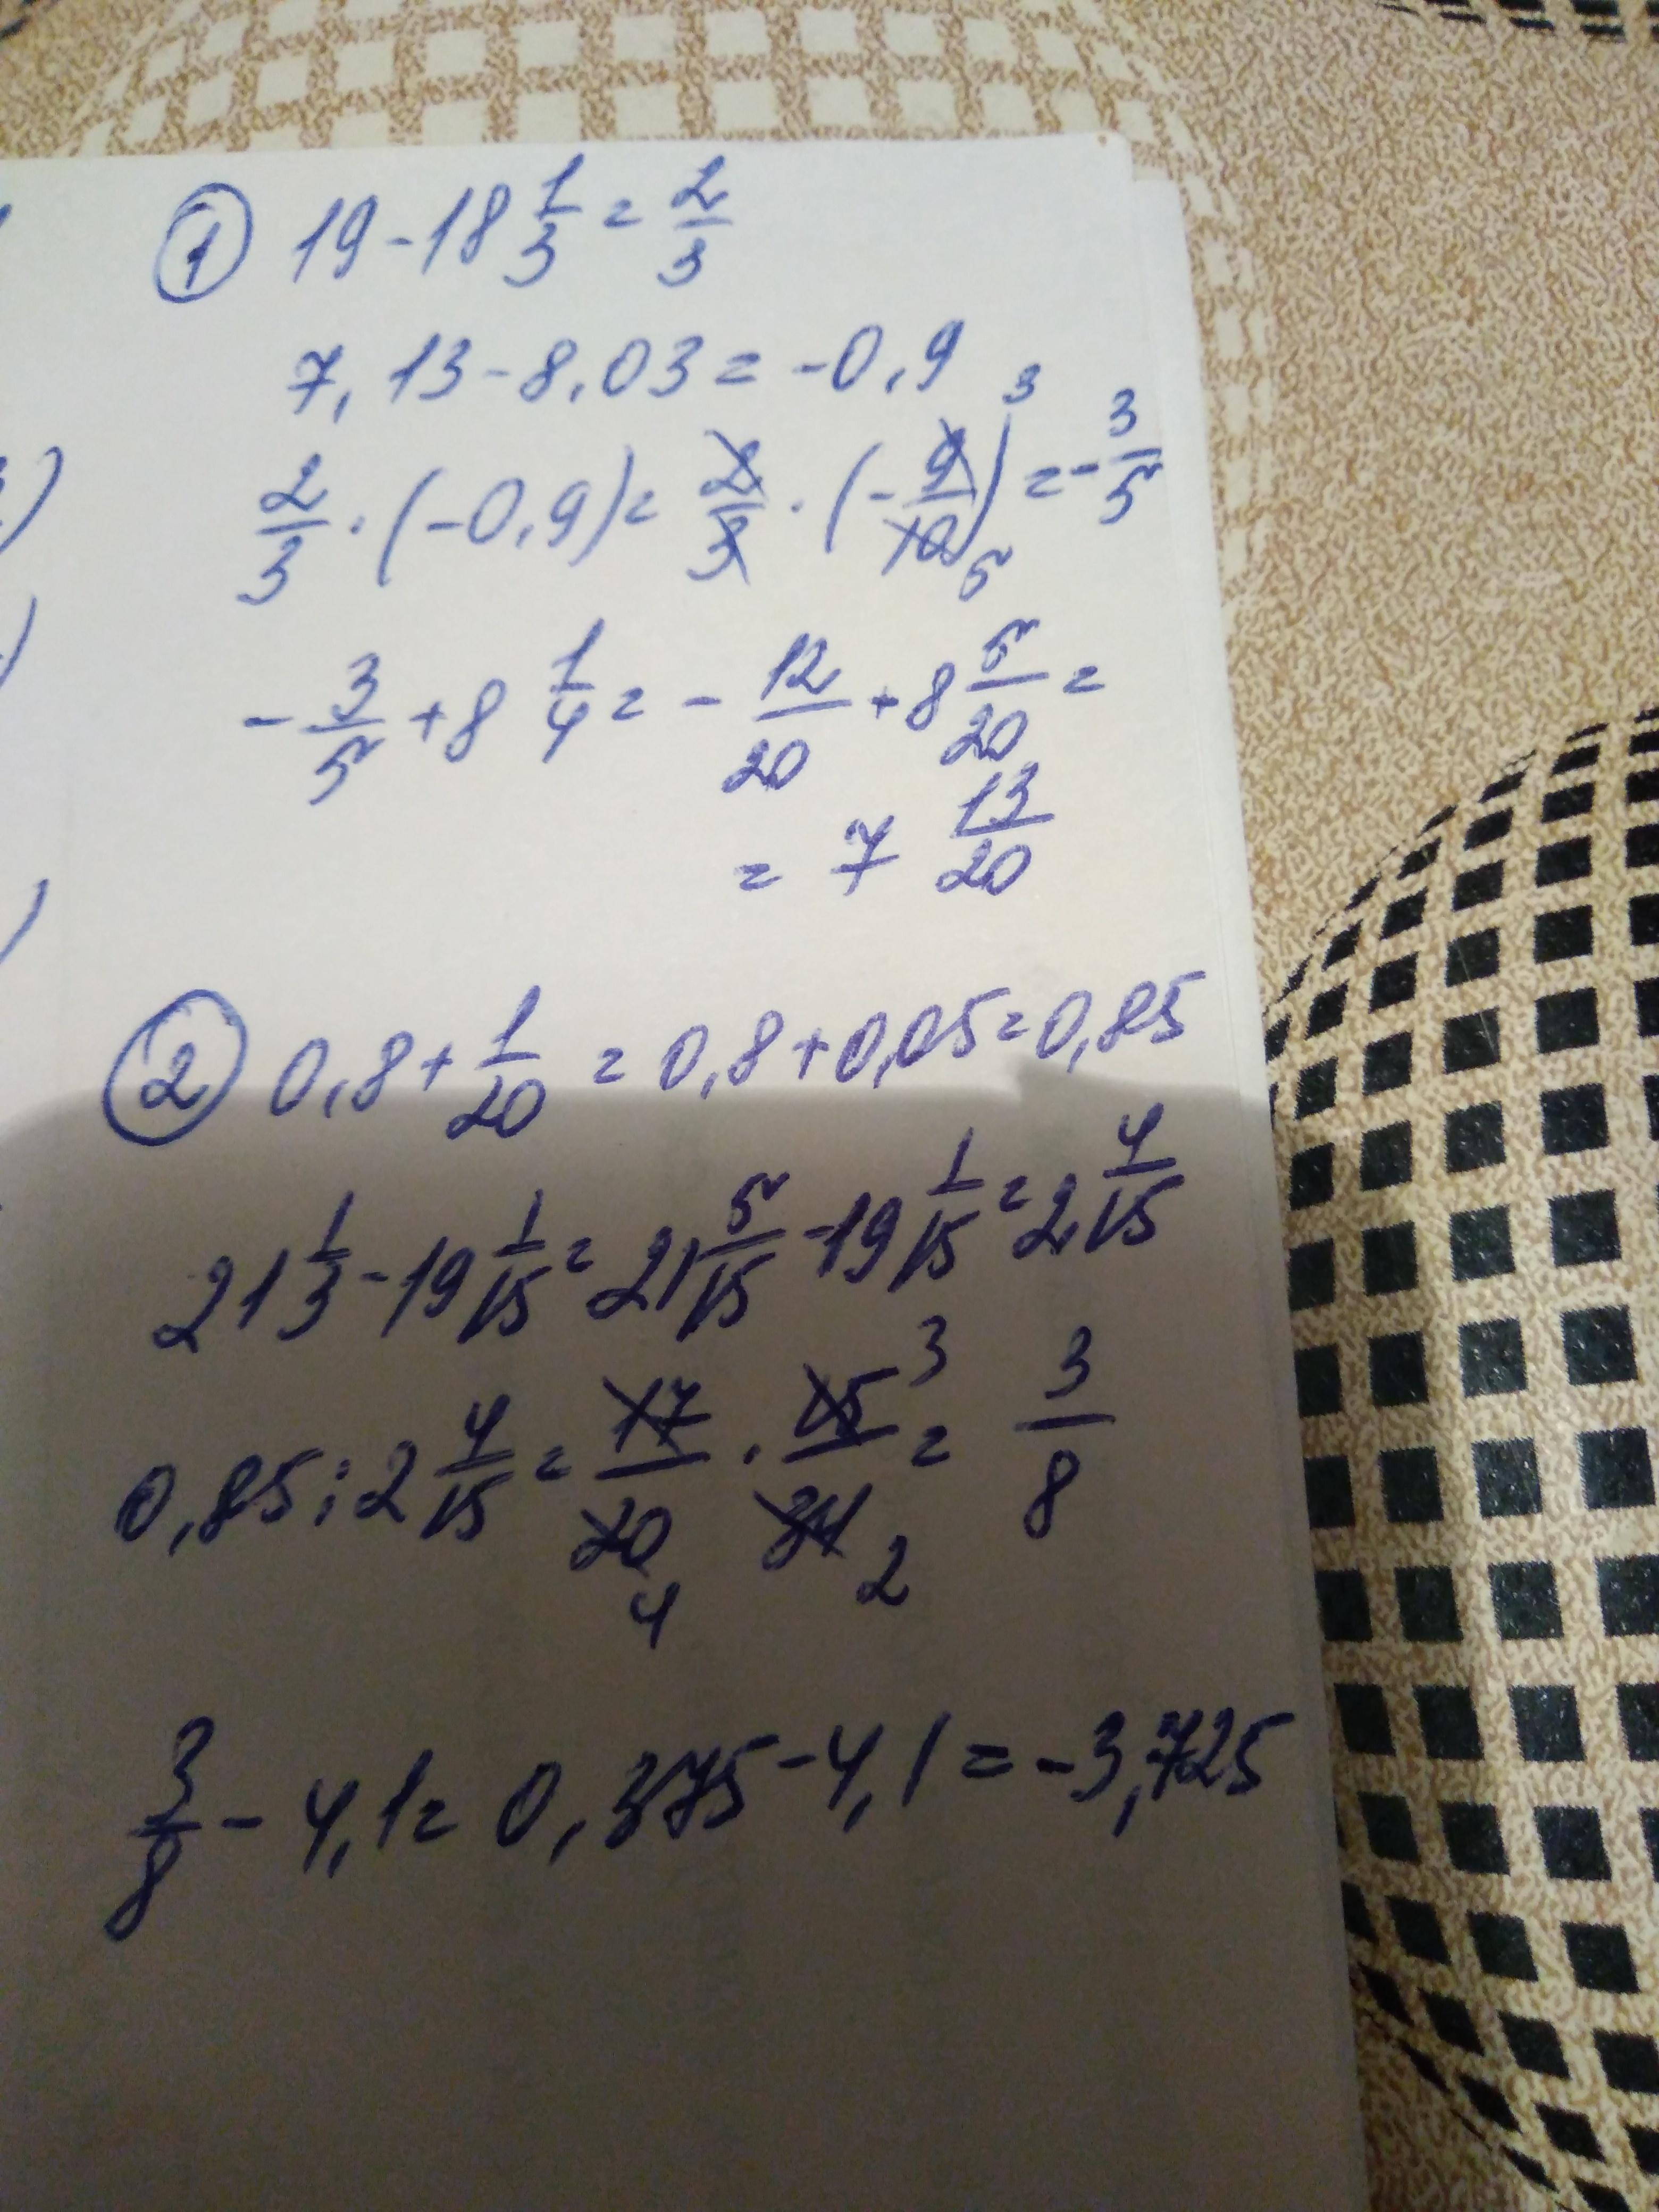 ① 19 - 18 1/3 = 2/3
7,13 - 8,03 = -0,9
2/3 · (-0,9) = 2/3 · (-9/10) 3 5 = -3/5
-3/5 + 8 1/4 = -12/20 + 8 5/20 =
= 7 13/20
② 0,8 + 1/20 = 0,8 + 0,05 = 0,85
21 1/3 - 19 1/15 = 21 5/15 - 19 1/15 = 2 4/15
0,85 : 2 4/15 = 17/20 4 · 15/34 3 2 = 3/8
3/8 - 4,1 = 0,375 - 4,1 = -3,725